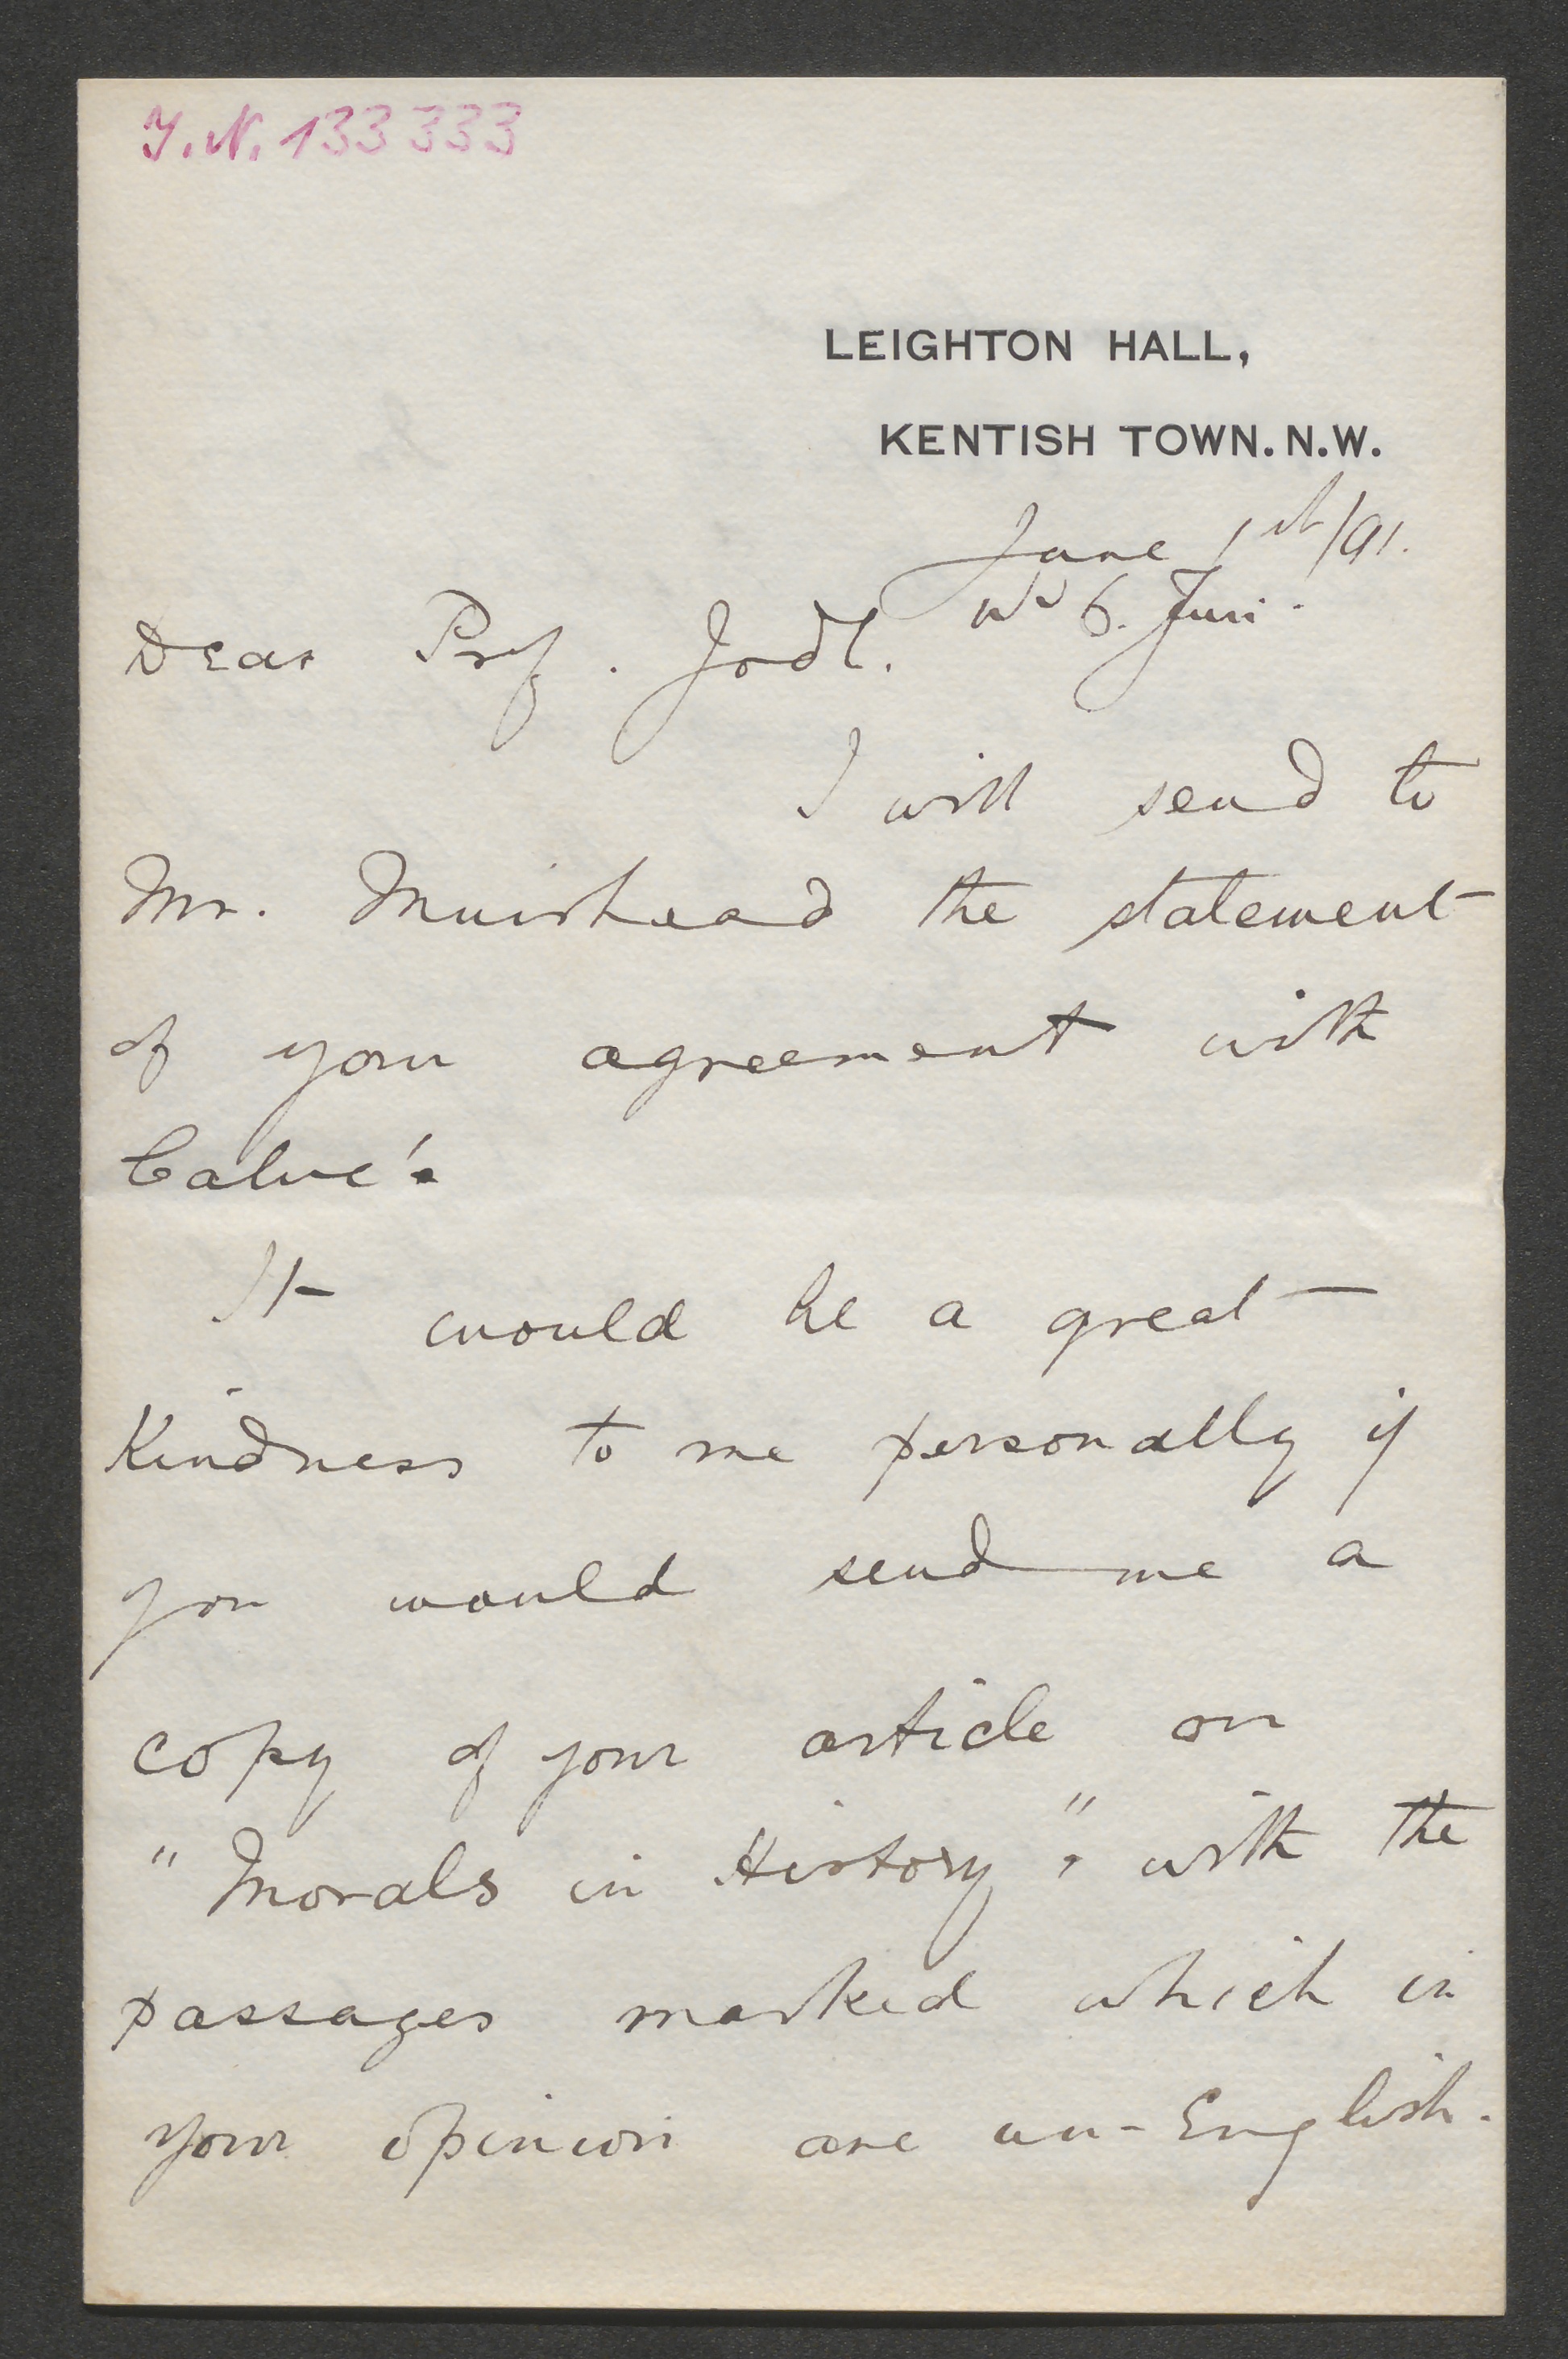 J.N. 133333
LEIGHTON HALL,
KENTISH TOWN. N.W.
June 1st/91.
6. Juni.
Dear Prof. Jodl.
I will send to
Mr. Muirhead the statement
of your agreement with
Calve's
It would be a great
Kindness to me personally if
you would send me a
copy of your article on
"Morals in History", with the
passages marked which in
your opinion are un-English.